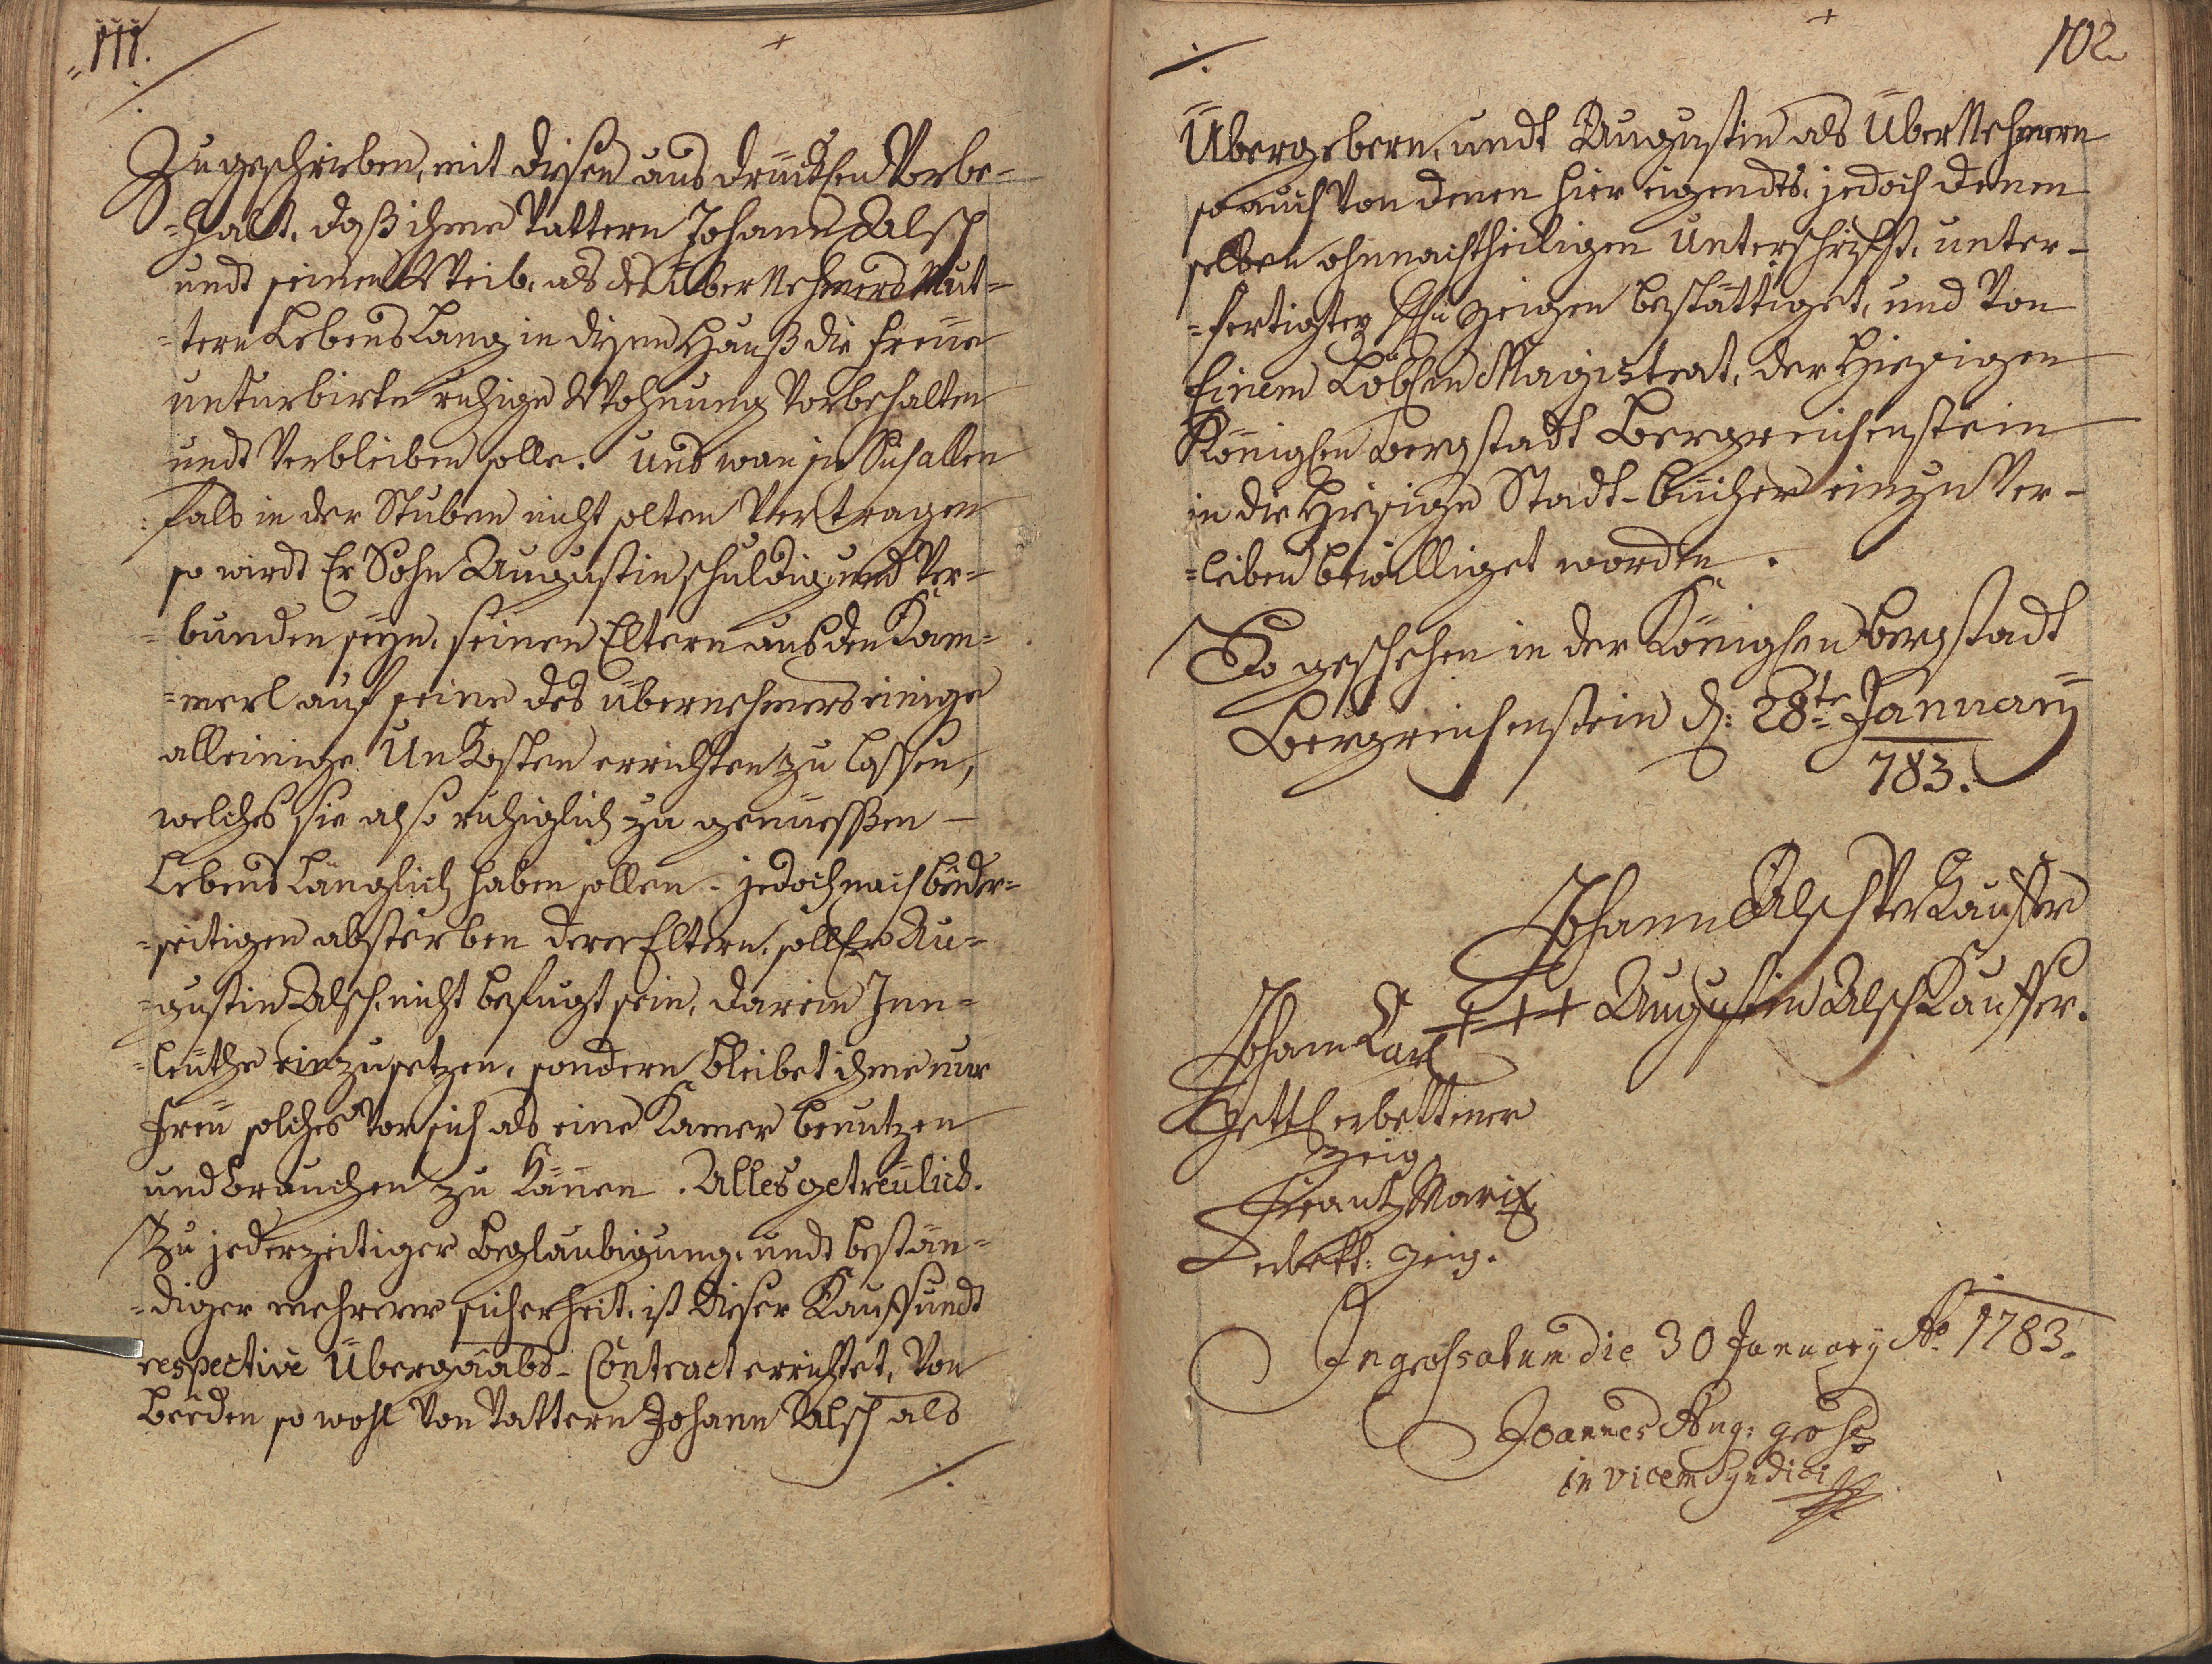 111.
Zugeschrieben, mit disen ausdrücklen Vorbe-
=halt, daß ihme Vattern Johann Alsch
undt seinen Weib, als des Über Nehmers Mut-
=tern Lebens Lang in disem Hauß die freüe
unturbirte ruhige Wohnung Vorbehalten
undt Verbleiben solle. Und wan sie
=fals in der Stuben nicht solten Vertragen
so wirdt Er Sohn Augustin schuldig und Ver-
=bunden seÿn, seinen Eltern aus den Kam-
=merl auf seine des übernehmers einige
alleinige Unkosten errichten zu lassen,
welches sie also ruhiglich zu genüessen –
Lebens Länglich haben sollen – jedoch nach beeder-
=seitigen absterben derer Eltern, soll Er Au-
=gustin Alsch nicht befugt sein, darein Inn-
=leüthe einzusetzen, sondern bleibet ihme nur
freü solches Vor sich als eine Kamer benutzen
und brauchen zu können. Alles getreülich.
Zu jederzeitiger Beglaubigung, undt bestän-
=diger mehrerer sicherheit, ist diser Kauf undt
respective Übergaabs-Contract errichtet, Von
beeden so wohl Von Vattern Johann Alsch als
102.
Übergebern, undt Augustin als Über Nehmern
so auch Von denen hier eigendts, jedoch denen
selben ohnnachtheiligen Unterschrifft, unter-
=fertigten H: Zeigen bestättiget, und Von
Einem Löblen Magistrat, der Hiesigen
Königlen Bergstadt Bergreichenstein
in die Hiesige Stadt-bücher einzu Ver-
=leiben bewilliget worden.
So geschehen in der Königlen Bergstadt
Bergreichenstein d: 28te Januarÿ
783.
Johann Alsch Verkauffer
+++ Augustin Alsch Kauffer.
Johann Carl
erbettener
Zeig
Frantz Marix
erbett: Zeig.
Ingrossatum die 30 Januarÿ Ao. 1783.
Joannes Aug: Groß
in vicem Syndici